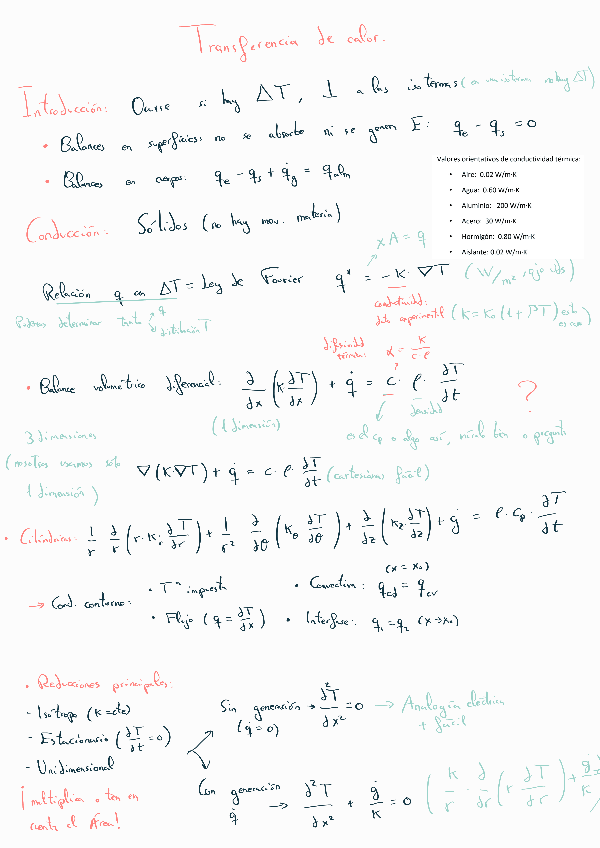 Transferencia de calor.
Introducción: Ocurre si hay ΔT, ⊥ a las isotermas (en una isoterma no hay ΔT)
• Balances en superficies: no se absorbe ni se genera E: qe - qs = 0
• Balances en cuerpos: qe - qs + q̇g = qalm
Valores orientativos de conductividad térmica:
• Aire: 0.02 W/m·K
• Agua: 0.60 W/m·K
• Aluminio: 200 W/m·K
• Acero: 30 W/m·K
• Hormigón: 0.80 W/m·K
• Aislante: 0.02 W/m·K
Conducción: Sólidos (no hay mov. materia)
x A = q
Relación q con ΔT = Ley de Fourier q" = -K · ∇T (W/m², ojo uds)
Podemos determinar tanto q
distribución T
conductividad:
dato experimental (K = K0 (1 + βT) esto es
difusividad térmica: α = K / c ρ
• Balance volumétrico diferencial: ∂/∂x (K ∂T/∂x) + q̇ = c · ρ · ∂T/∂t
(1 dimensión)
densidad
?
es el cp o algo así, míralo bien o pregunta
3 dimensiones
(nosotros usamos sólo
1 dimensión)
∇(K·∇T) + q̇ = c · ρ · ∂T/∂t (cartesianas fácil)
• Cilíndricas: 1/r ∂/∂r (r · Kr ∂T/∂r) + 1/r² ∂/∂θ (Kθ ∂T/∂θ) + ∂/∂z (Kz ∂T/∂z) + q̇ = ρ · cp · ∂T/∂t
→ Cond. contorno:
• Tª impuesta
• Flujo (q = ∂T/∂x)
(x = x0)
• Convectiva: qcd = qcv
• Interfase: q1 = q2 (x→x0)
• Reducciones principales:
- Isótropo (K = cte)
- Estacionario (∂T/∂t = 0)
- Unidimensional
¡multiplica o ten en
cuenta el Área!
Sin generación → ∂²T/∂x² = 0 → Analogía eléctrica
(q̇ = 0)
+ fácil
Con generación → ∂²T/∂x² + q̇/K = 0 (K/r · ∂/∂r (r ∂T/∂r) + q̇/K
q̇